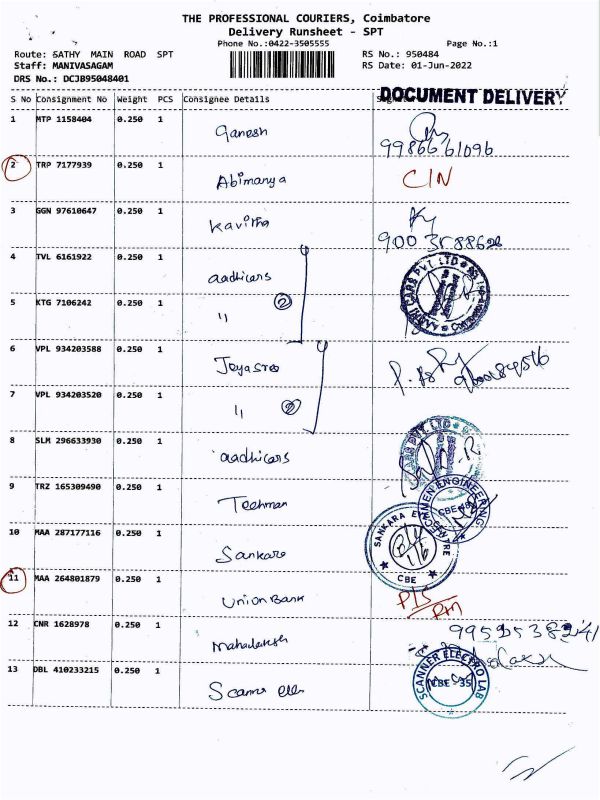 THE PROFESSIONAL COURIERS, Coimbatore
Delivery Runsheet - SPT
Phone No.:0422-3505555 Page No.:1
Route: SATHY MAIN ROAD SPT RS No.: 950484
Staff: MANIVASAGAM RS Date: 01-Jun-2022
DRS No.: DCJB95048401
DOCUMENT DELIVERY
S No Consignment No Weight PCS Consignee Details
1 MTP 1158404 0.250 1 Ganesh
2 TRP 7177939 0.250 1 Abimanya C/N
3 GGN 97610647 0.250 1 Kavitha
4 TVL 6161922 0.250 1 aadhicars
5 KTG 7106242 0.250 1 " 2
6 VPL 934203588 0.250 1 Jayasree
7 VPL 934203520 0.250 1 "
8 SLM 296633930 0.250 1 aadhicars
9 TRZ 165309490 0.250 1 Techman
TECHMEN ENGINEERING
10 MAA 287177116 0.250 1 Sankara
SANKARA
CBE
11 MAA 264801879 0.250 1 Union Bank
12 CNR 1628978 0.250 1
13 DBL 410233215 0.250 1
SCANNER ELECTRO LAB
CBE - 35